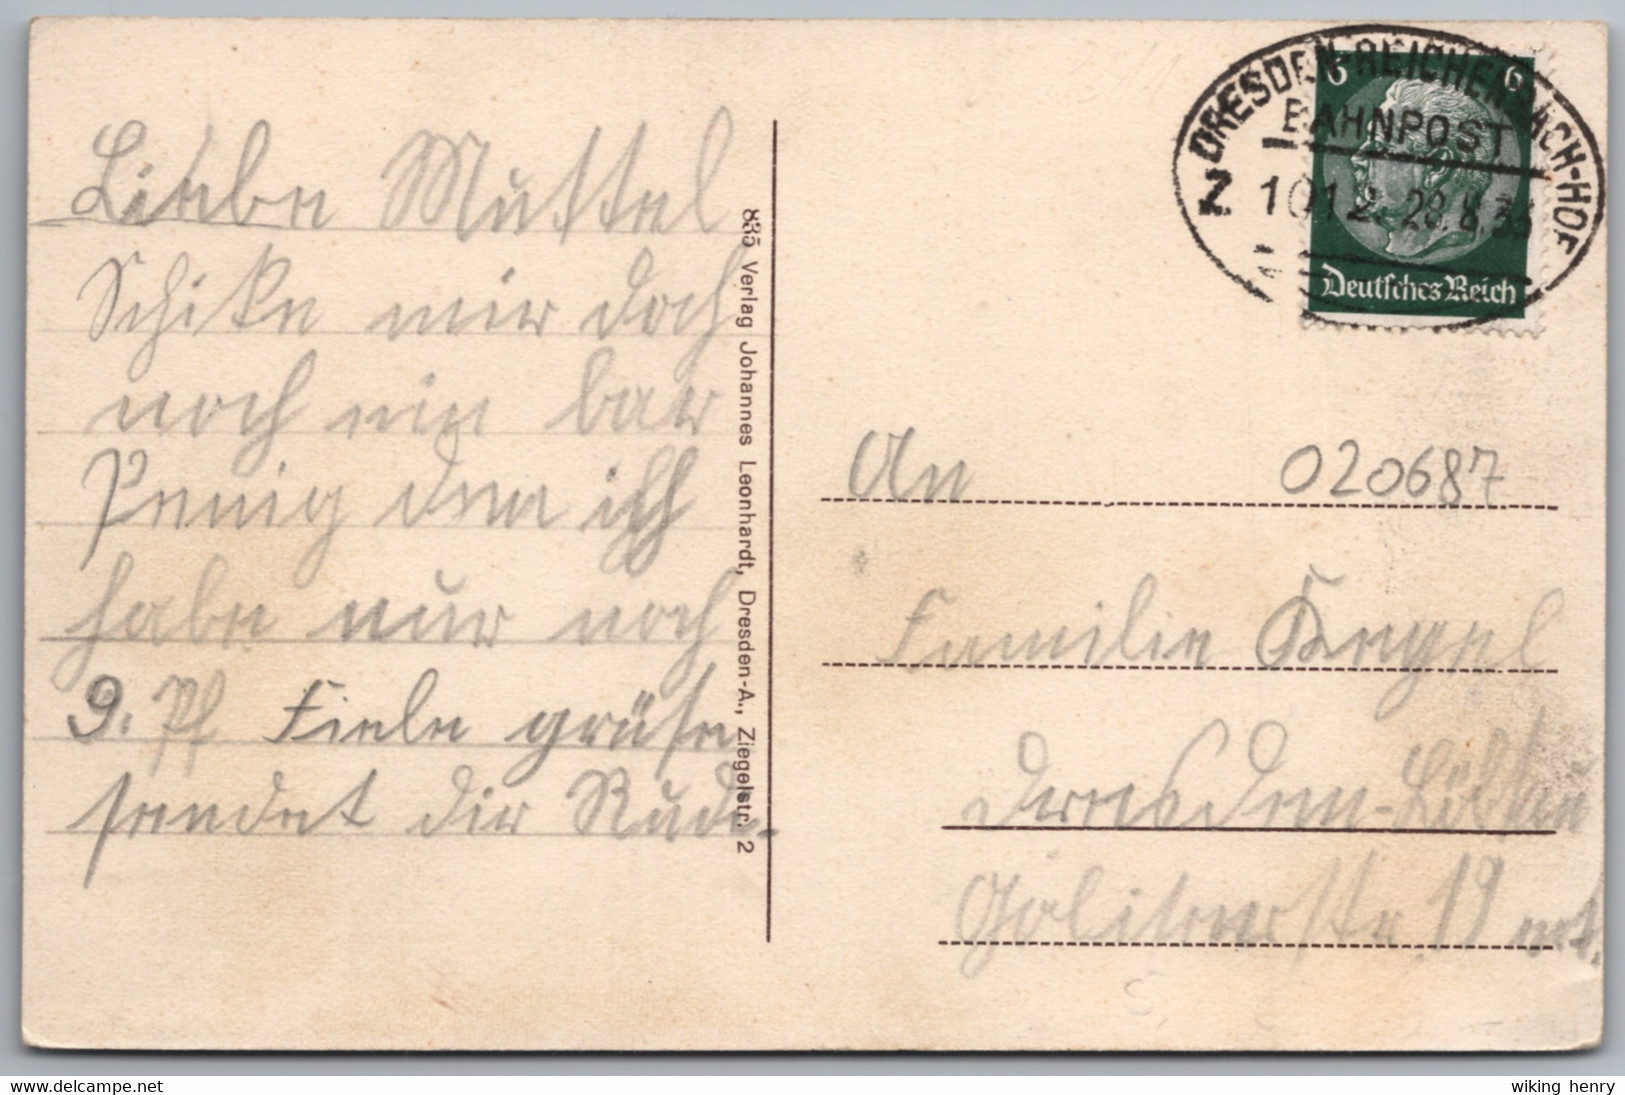 Liebe Muttel
Schike mir doch
noch ein bar
Pennig den ich
habe nur noch
9. Pf Fiele grüse
sendet dir Rudi.
835 Verlag Johannes Leonhardt, Dresden-A., Ziegelstr. 2
DRESDEN-REICHENBACH-HOF
BAHNPOST
Z. 1012 28.8.35
6 6
Deutsches Reich
An
020687
Familie Kegel
Dresden-Löbtau
Gölitzerstr 19
www.delcampe.net
wiking henry